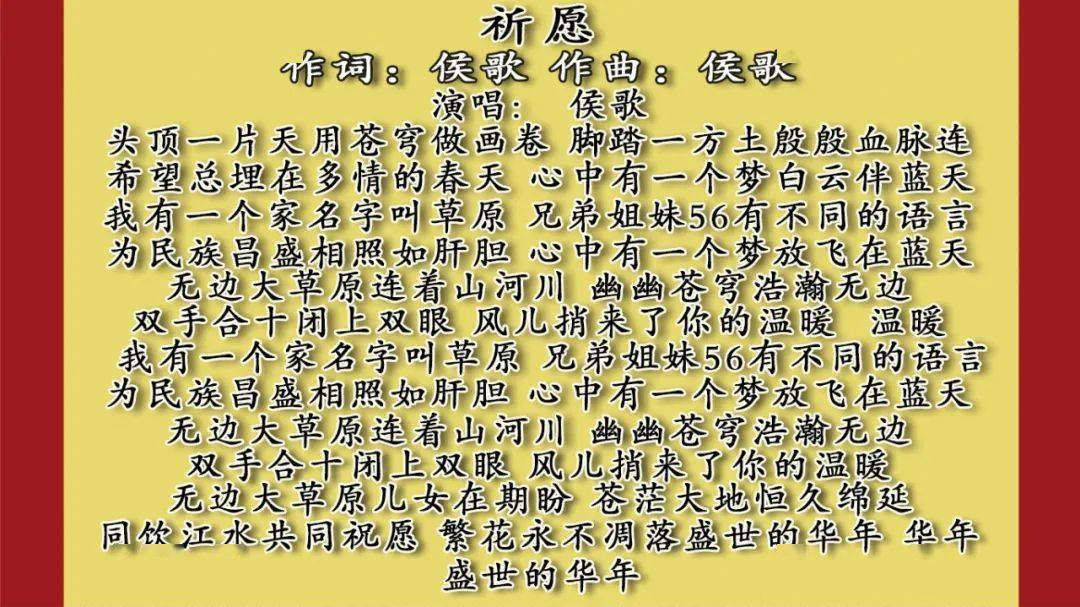 祈愿
作词：侯歌 作曲：侯歌
演唱： 侯歌
头顶一片天用苍穹做画卷 脚踏一方土殷殷血脉连
希望总埋在多情的春天 心中有一个梦白云伴蓝天
我有一个家名字叫草原 兄弟姐妹56有不同的语言
为民族昌盛相照如肝胆 心中有一个梦放飞在蓝天
无边大草原连着山河川 幽幽苍穹浩瀚无边
双手合十闭上双眼 风儿捎来了你的温暖 温暖
我有一个家名字叫草原 兄弟姐妹56有不同的语言
为民族昌盛相照如肝胆 心中有一个梦放飞在蓝天
无边大草原连着山河川 幽幽苍穹浩瀚无边
双手合十闭上双眼 风儿捎来了你的温暖
无边大草原儿女在期盼 苍茫大地恒久绵延
同饮江水共同祝愿 繁花永不凋落盛世的华年 华年
盛世的华年